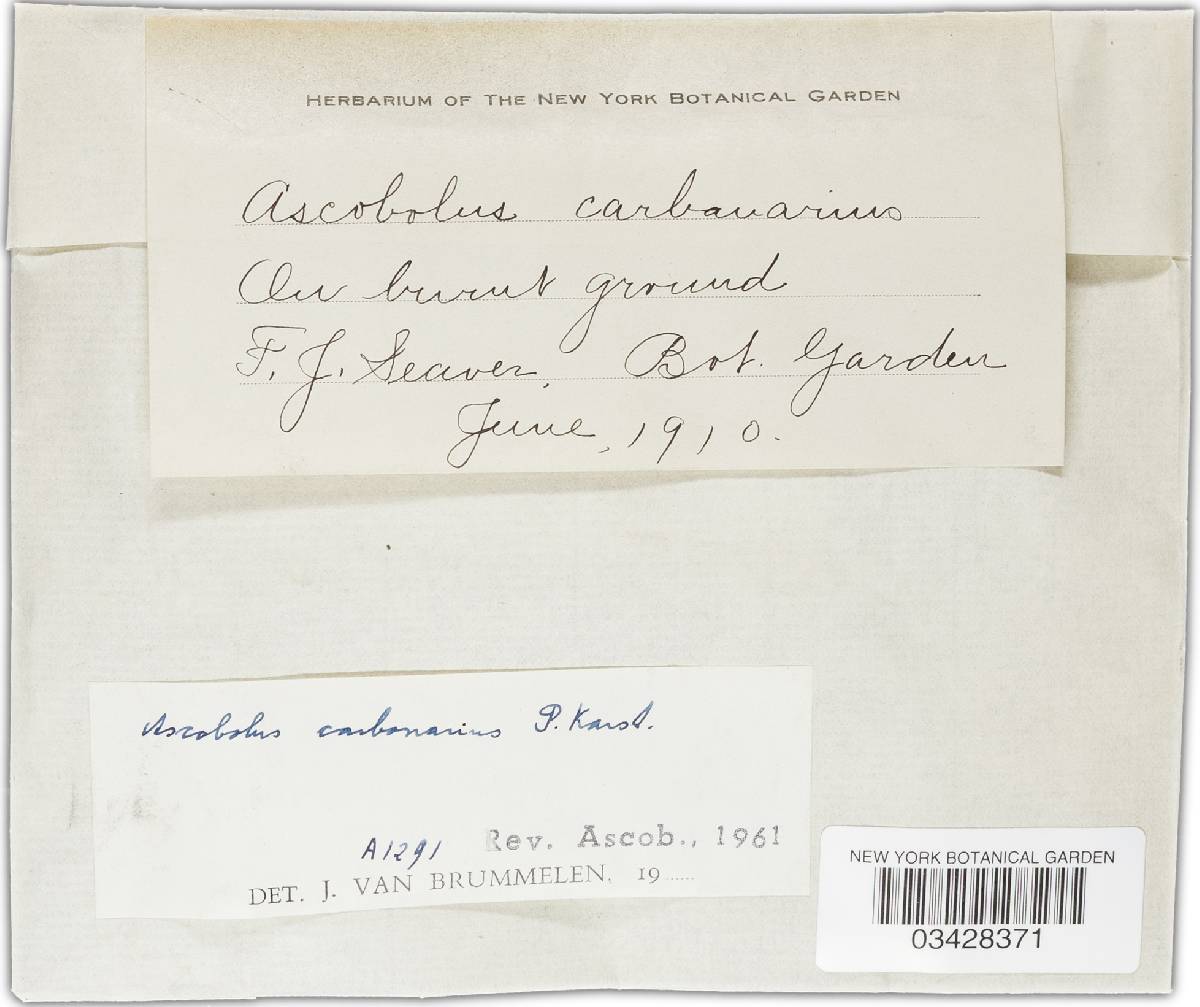 HERBARIUM OF THE NEW YORK BOTANICAL GARDEN
Ascobolus carbonarius
On burnt ground
F. J. Seaver, Bot. Garden
June, 1910.
Ascobolus carbonarius P. Karst.
A1291 Rev. Ascob., 1961
DET. J. VAN BRUMMELEN, 19......
NEW YORK BOTANICAL GARDEN
03428371